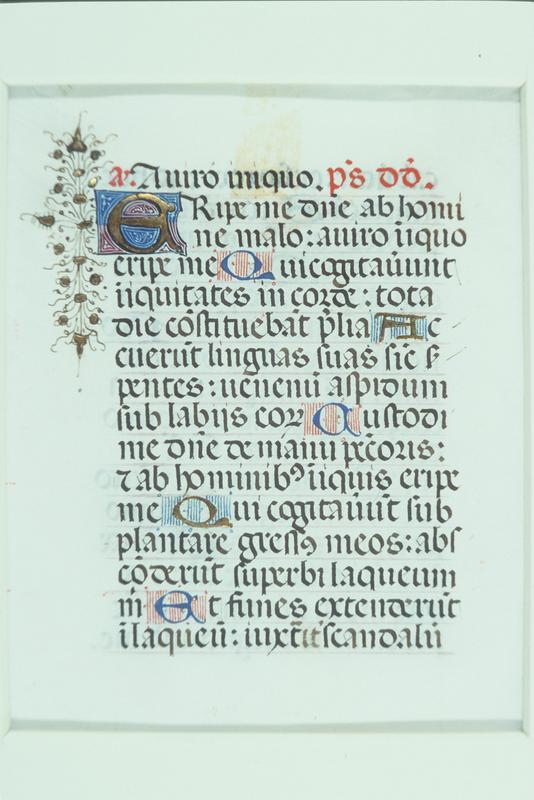 a. A uiro iniquo. p̄s dd̄.
ERipe me dn̄e ab homi
ne malo: a uiro īiquo
eripe me Qui cogitauūnt
īiquitates in corde: tota
die cōstituebāt p̄lia Ac
cuerūt linguas suas sic̄ s̄
pentes: uenenū aspidum
sub labijs eoꝝ Custodi
me dn̄e de manu pc̄coris:
⁊ ab hominibꝰ īiquis eripe
me Qui cogitauūt sub
plantare gressꝰ meos: abs
cōderūt superbi laqueum
m̄ Et funes extenderūt
ī laqueū: iuxta it̄ scandalū